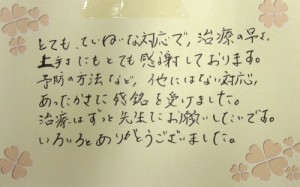 とても、ていねいな対応で、治療の早さ、
上手さにもとても感謝しております。
予防の方法など、他にはない対応、
あったかさに感銘を受けました。
治療はずっと先生にお願いしたいです。
いろいろとありがとうございました。